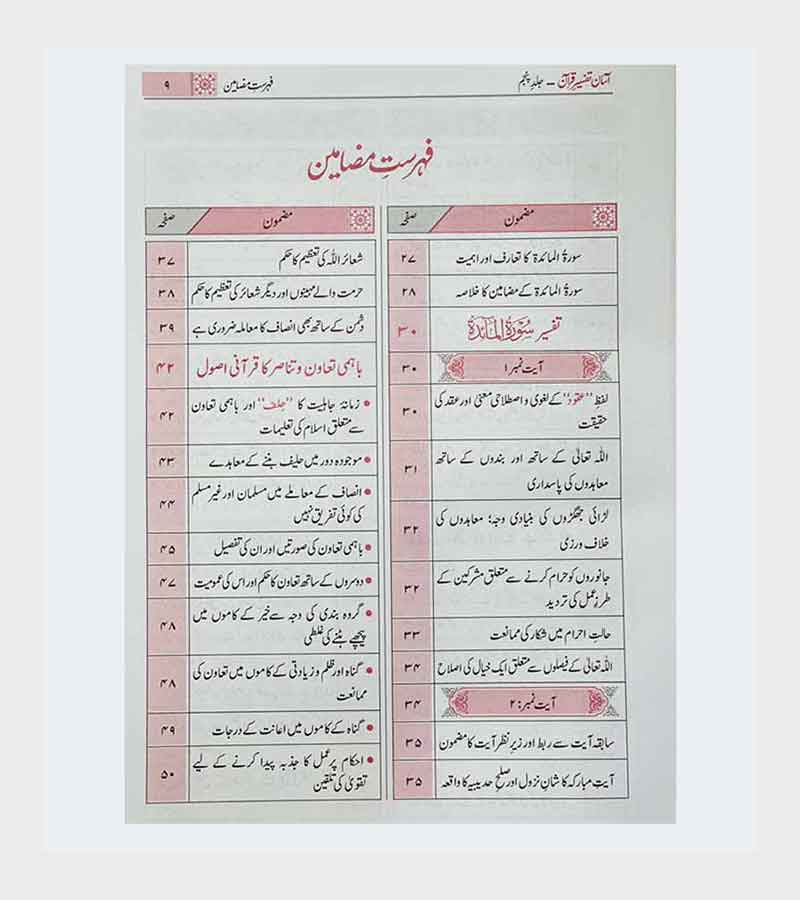 آسان تفسیر قرآن – جلدِ پنجم
فہرستِ مضامین
۹
فہرستِ مضامین
مضمون صفحہ
سورۃ المائدۃ کا تعارف اور اہمیت ۲۷
سورۃ المائدۃ کے مضامین کا خلاصہ ۲۸
تفسیر سُوْرَۃُ الْمَآئِدَۃ ۳۰
آیت نمبر: ۱ ۳۰
لفظِ ”عقود“ کے لغوی و اصطلاحی معنیٰ اور عقد کی
حقیقت ۳۰
اللہ تعالیٰ کے ساتھ اور بندوں کے ساتھ
معاہدوں کی پاسداری ۳۱
لڑائی جھگڑوں کی بنیادی وجہ؛ معاہدوں کی
خلاف ورزی ۳۲
جانوروں کو حرام کرنے سے متعلق مشرکین کے
طرزِ عمل کی تردید ۳۲
حالتِ احرام میں شکار کی ممانعت ۳۳
اللہ تعالیٰ کے فیصلوں سے متعلق ایک خیال کی اصلاح ۳۴
آیت نمبر: ۲ ۳۴
سابقہ آیت سے ربط اور زیرِ نظر آیت کا مضمون ۳۵
آیتِ مبارکہ کا شانِ نزول اور صلحِ حدیبیہ کا واقعہ ۳۵
مضمون صفحہ
شعائر اللہ کی تعظیم کا حکم ۳۷
حرمت والے مہینوں اور دیگر شعائر کی تعظیم کا حکم ۳۸
دشمن کے ساتھ بھی انصاف کا معاملہ ضروری ہے ۳۹
باہمی تعاون و تناصر کا قرآنی اصول ۴۲
• زمانۂ جاہلیت کا ”حِلف“ اور باہمی تعاون
سے متعلق اسلام کی تعلیمات ۴۲
• موجودہ دور میں حلیف بننے کے معاہدے ۴۳
• انصاف کے معاملے میں مسلمان اور غیر مسلم
کی کوئی تفریق نہیں ۴۴
• باہمی تعاون کی صورتیں اور ان کی تفصیل ۴۵
• دوسروں کے ساتھ تعاون کا حکم اور اس کی عمومیت ۴۷
• گروہ بندی کی وجہ سے خیر کے کاموں میں
پیچھے ہٹنے کی غلطی ۴۸
• گناہ اور ظلم و زیادتی کے کاموں میں تعاون کی
ممانعت ۴۸
• گناہ کے کاموں میں اعانت کے درجات ۴۹
• احکام پر عمل کا جذبہ پیدا کرنے کے لیے
تقویٰ کی تلقین ۵۰